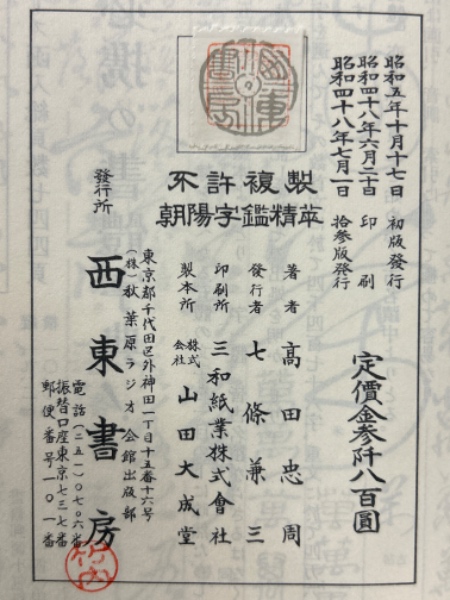 昭和五年十月十七日 初版發行
昭和四十八年六月二十日 印刷
昭和四十八年七月一日 拾参版發行
定價金参阡八百圓
不許複製
朝陽字鑑精萃
著者 高田忠周
發行者 七條兼三
印刷所 三和紙業株式會社
製本所 株式会社 山田大成堂
東京都千代田区外神田一丁目十五番十六号
(株)秋葉原ラジオ会館出版部
發行所 西東書房
電話(二五一)〇七〇六番
振替口座東京七三七番
郵便番号一〇一番
竹内